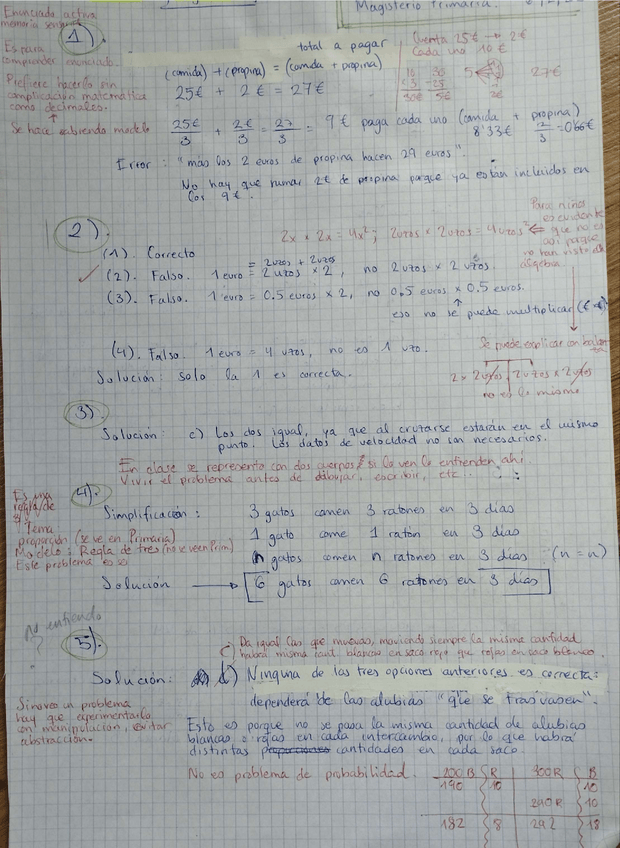 Magisterio Primaria.
Enunciado activa
memoria
Es para
comprender enunciado.
Prefiere hacerlo sin
complicación matemática
como decimales.
Se hace sabiendo modelo
1).
total a pagar
(comida) + (propina) = (comida + propina)
25€ + 2€ = 27€
Cuenta 25€ → 2€
Cada uno 10€
10 30
× 3 - 25
30€ 5€
5 2€
27€
25€/3 + 2€/3 = 27/3 = 9€ paga cada uno (comida + propina)
8'33€ 2/3 = 0'66€
Error: "más los 2 euros de propina hacen 29 euros".
No hay que sumar 2€ de propina porque ya están incluidos en
los 9€.
2).
2x × 2x = 4x²; 2uros × 2uros = 4uros²
Para niños
es evidente
que no es
así porque
no han visto
álgebra
(1). Correcto
= 2uros + 2uros
(2). Falso. 1 euro = 2 uros × 2, no 2uros × 2 uros.
(3). Falso. 1 euro = 0.5 euros × 2, no 0,5 euros × 0.5 euros.
eso no se puede multiplicar
(4). Falso. 1 euro = 4 uros, no es 1 uro.
Solución: solo la 1 es correcta.
Se puede explicar con
2 × 2uros 2uros × 2uros
no es lo mismo
3).
Solución: c) Los dos igual, ya que al cruzarse estarán en el mismo
punto. Los datos de velocidad no son necesarios.
En clase se representa con dos cuerpos si lo ven lo entienden ahí
Vivir el problema antes de dibujar, escribir, etc.
Es una
regla de
3
Tema
proporción (se ve en Primaria)
Modelo: Regla de tres (no se ve en Prim)
Este problema es
4).
Simplificación: 3 gatos comen 3 ratones en 3 días
1 gato come 1 ratón en 3 días
n gatos comen n ratones en 3 días (n = n)
Solución → 6 gatos comen 6 ratones en 3 días
no entiendo
?
5).
c) Da igual las que muevas, moviendo siempre la misma cantidad
habrá misma cant. blancas en saco rojo que rojas en saco blanco.
Solución: d) Ninguna de las tres opciones anteriores es correcta:
dependerá de las alubias "que se trasvasen".
Si no ves un problema
hay que experimentarlo
con manipulación, evitar
abstracción.
Esto es porque no se pasa la misma cantidad de alubias
blancas = rojas en cada intercambio, por lo que habrá
distintas proporciones cantidades en cada saco.
No es problema de probabilidad.
200 B R 300 R B
190 10 10
290R 10
182 8 292 18